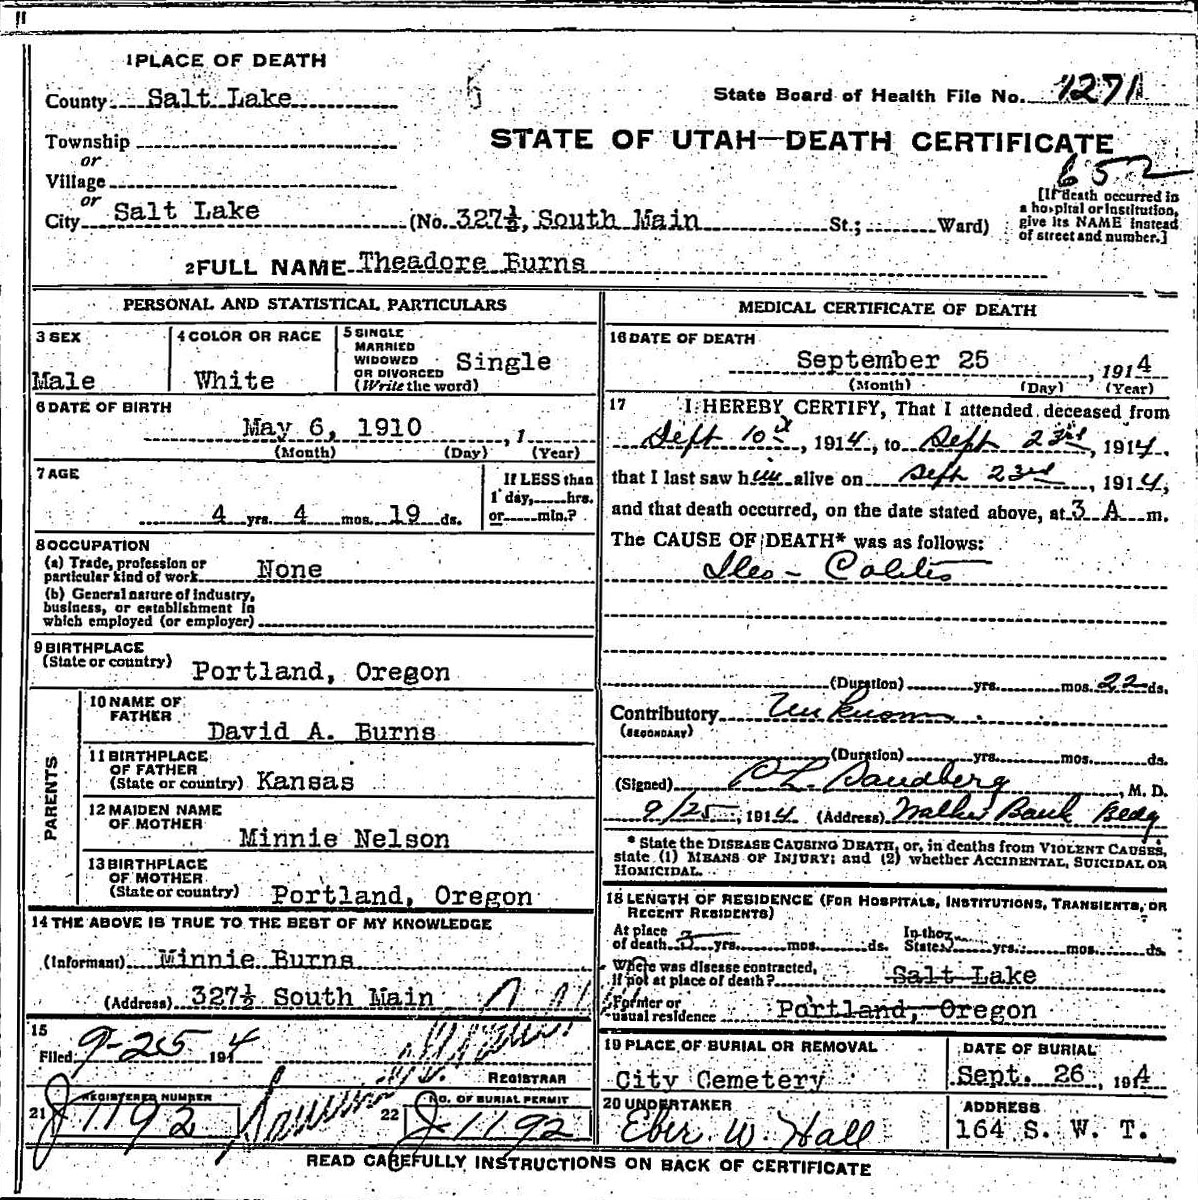 1 PLACE OF DEATH
County Salt Lake
State Board of Health File No. 1271
Township
or
Village
or
City Salt Lake
STATE OF UTAH—DEATH CERTIFICATE
652
(No. 327½, South Main St.; Ward)
[If death occurred in
a hospital or institution,
give its NAME instead
of street and number.]
2 FULL NAME Theadore Burns
PERSONAL AND STATISTICAL PARTICULARS
3 SEX
Male
4 COLOR OR RACE
White
5 SINGLE
MARRIED
WIDOWED
OR DIVORCED
(Write the word)
Single
6 DATE OF BIRTH
May 6, 1910 , 1
(Month) (Day) (Year)
7 AGE
4 yrs. 4 mos. 19 ds.
If LESS than
1 day, hrs.
or min.?
8 OCCUPATION
(a) Trade, profession or
particular kind of work None
(b) General nature of industry,
business, or establishment in
which employed (or employer)
9 BIRTHPLACE
(State or country) Portland, Oregon
PARENTS
10 NAME OF
FATHER
David A. Burns
11 BIRTHPLACE
OF FATHER
(State or country) Kansas
12 MAIDEN NAME
OF MOTHER
Minnie Nelson
13 BIRTHPLACE
OF MOTHER
(State or country) Portland, Oregon
14 THE ABOVE IS TRUE TO THE BEST OF MY KNOWLEDGE
(Informant) Minnie Burns
(Address) 327½ South Main
15
Filed 9-25 1914
REGISTRAR
REGISTERED NUMBER
21 J 1192
NO. OF BURIAL PERMIT
22 J-1192
MEDICAL CERTIFICATE OF DEATH
16 DATE OF DEATH
September 25 , 1914
(Month) (Day) (Year)
17 I HEREBY CERTIFY, That I attended deceased from
Sept 10th, 1914, to Sept 23rd, 1914.
that I last saw him alive on Sept 23rd, 1914,
and that death occurred, on the date stated above, at 3 A m.
The CAUSE OF DEATH* was as follows:
Ileo-Colitis
(Duration) yrs. mos. 22 ds.
Contributory Unknown
(SECONDARY)
(Duration) yrs. mos. ds.
(Signed) Sandberg, M. D.
9/25, 1914 (Address) Walker Bank Bldg
* State the DISEASE CAUSING DEATH, or, in deaths from VIOLENT CAUSES,
state (1) MEANS OF INJURY; and (2) whether ACCIDENTAL, SUICIDAL OR
HOMICIDAL.
18 LENGTH OF RESIDENCE (FOR HOSPITALS, INSTITUTIONS, TRANSIENTS, OR
RECENT RESIDENTS)
At place
of death 3 yrs. mos. ds.
In the
State yrs. mos. ds.
Where was disease contracted,
if not at place of death? Salt Lake
Former or
usual residence Portland, Oregon
19 PLACE OF BURIAL OR REMOVAL
City Cemetery
DATE OF BURIAL
Sept. 26 , 1914
20 UNDERTAKER
Eber W. Hall
ADDRESS
164 S. W. T.
READ CAREFULLY INSTRUCTIONS ON BACK OF CERTIFICATE